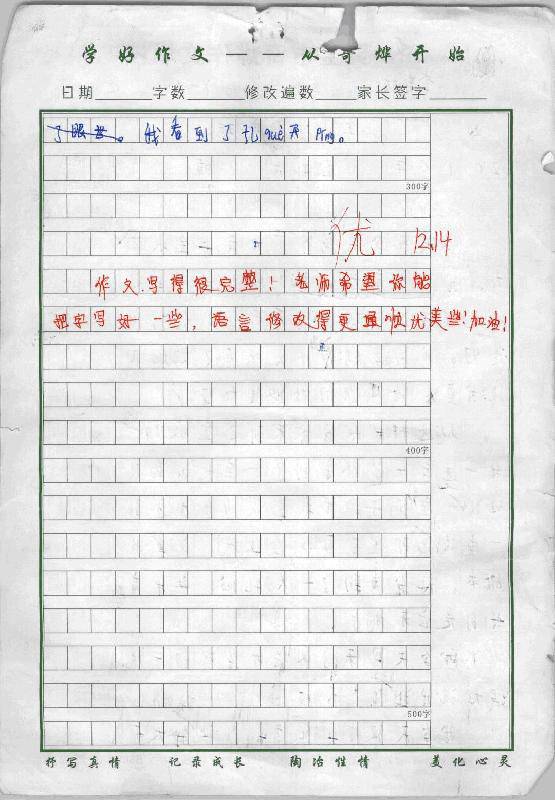 学好作文——从奇烨开始
日期 字数 修改遍数 家长签字
了眼 。我看到了孔què开Píng。
300字
优 12.14
作文写得很完整!老师希望你能
把字写好一些,语言修改得更通顺优美些!加油!
400字
500字
抒写真情 记录成长 陶冶性情 美化心灵